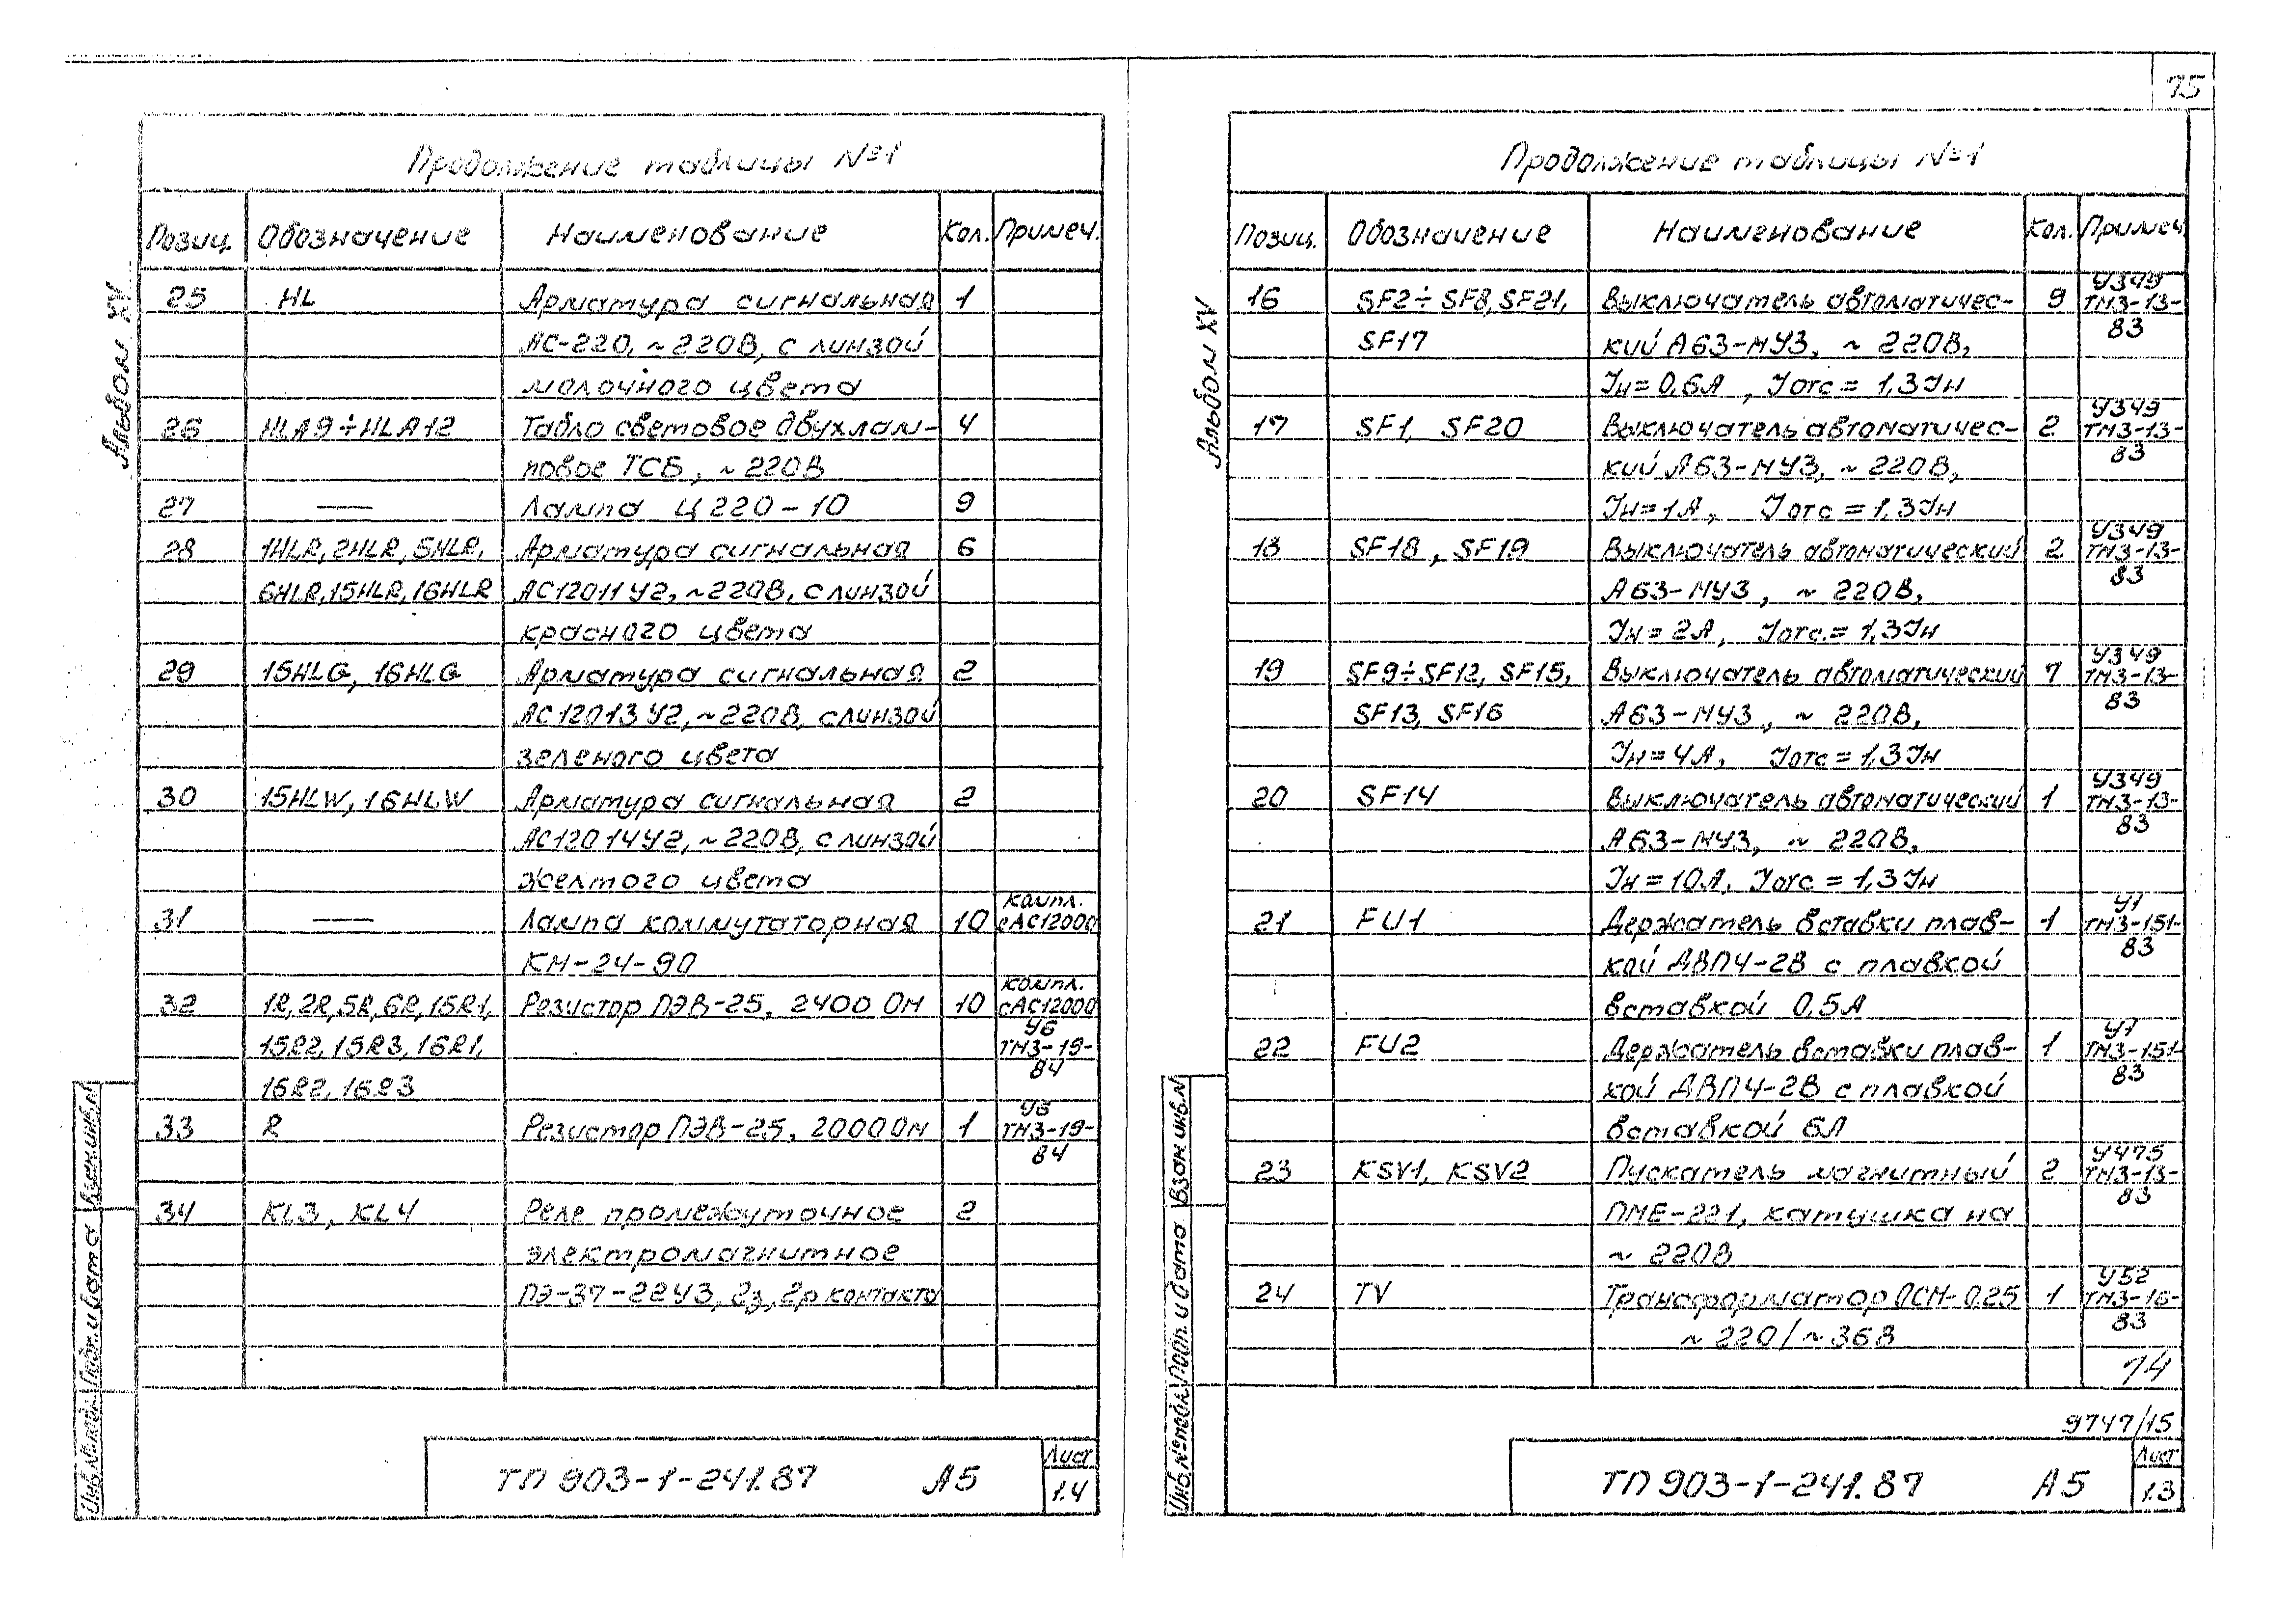 75
Альбом XV
Продолжение таблицы №1
Позиц. Обозначение Наименование Кол. Примеч.
25 HL Арматура сигнальная 1
АС-220, ~220В, с линзой
молочного цвета
26 HLA9÷HLA12 Табло световое двухлам- 4
повое ТСБ, ~220В
27 — Лампа Ц220-10 9
28 1HLR, 2HLR, 5HLR, Арматура сигнальная 6
6HLR, 15HLR, 16HLR АС12011У2, ~220В, с линзой
красного цвета
29 15HLG, 16HLG Арматура сигнальная 2
АС12013У2, ~220В, с линзой
зеленого цвета
30 15HLW, 16HLW Арматура сигнальная 2
АС12014У2, ~220В, с линзой
желтого цвета
31 — Лампа коммутаторная 10 компл. сАС12000
КМ-24-90
32 1R, 2R, 5R, 6R, 15R1, Резистор ПЭВ-25, 2400 Ом 10 компл. сАС12000
15R2, 15R3, 16R1, У6 ТМ3-19-84
16R2, 16R3
33 R Резистор ПЭВ-25, 2000 Ом 1 У6 ТМ3-19-84
34 KL3, KL4 Реле промежуточное 2
электромагнитное
ПЭ-37-22У3, 2з, 2р контакта
Инв.№подл. Подп. и дата Взам.инв.N
ТП 903-1-241.87 А5
Лист
1.4
Альбом XV
Продолжение таблицы №1
Позиц. Обозначение Наименование Кол. Примеч
16 SF2÷SF8, SF21, Выключатель автоматичес- 9 У349 ТМ3-13-83
SF17 кий А63-МУ3, ~ 220В,
Iн=0,6А, Iотс=1,3Iн
17 SF1, SF20 Выключатель автоматичес- 2 У349 ТМ3-13-83
кий А63-МУ3, ~ 220В,
Iн=1А, Iотс=1,3Iн
18 SF18, SF19 Выключатель автоматический 2 У349 ТМ3-13-83
А63-МУ3, ~ 220В,
Iн=2А, Iотс.=1,3Iн
19 SF9÷SF12, SF15, Выключатель автоматический 7 У349 ТМ3-13-83
SF13, SF16 А63-МУ3, ~ 220В,
Iн=4А, Iотс=1,3Iн
20 SF14 Выключатель автоматический 1 У349 ТМ3-13-83
А63-МУ3, ~ 220В,
Iн=10А, Iотс=1,3Iн
21 FU1 Держатель вставки плав- 1 У1 ТМ3-151-83
кой ДВП4-2В с плавкой
вставкой 0,5А
22 FU2 Держатель вставки плав- 1 У1 ТМ3-151-83
кой ДВП4-2В с плавкой
вставкой 6А
23 KSV1, KSV2 Пускатель магнитный 2 У475 ТМ3-13-83
ПМЕ-221, катушка на
~ 220В
24 TV Трансформатор ОСМ-0,25 1 У52 ТМ3-16-83
~ 220/~36В
74
9747/15
Инв.№подл. Подп. и дата Взам инв.N
ТП 903-1-241.87 А5
Лист
1.3